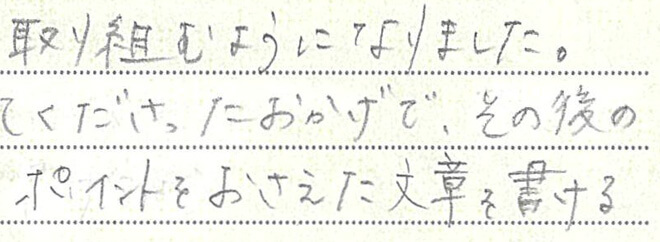 取り組むようになりました。
てくださったおかげで、その後の
ポイントをおさえた文章を書ける